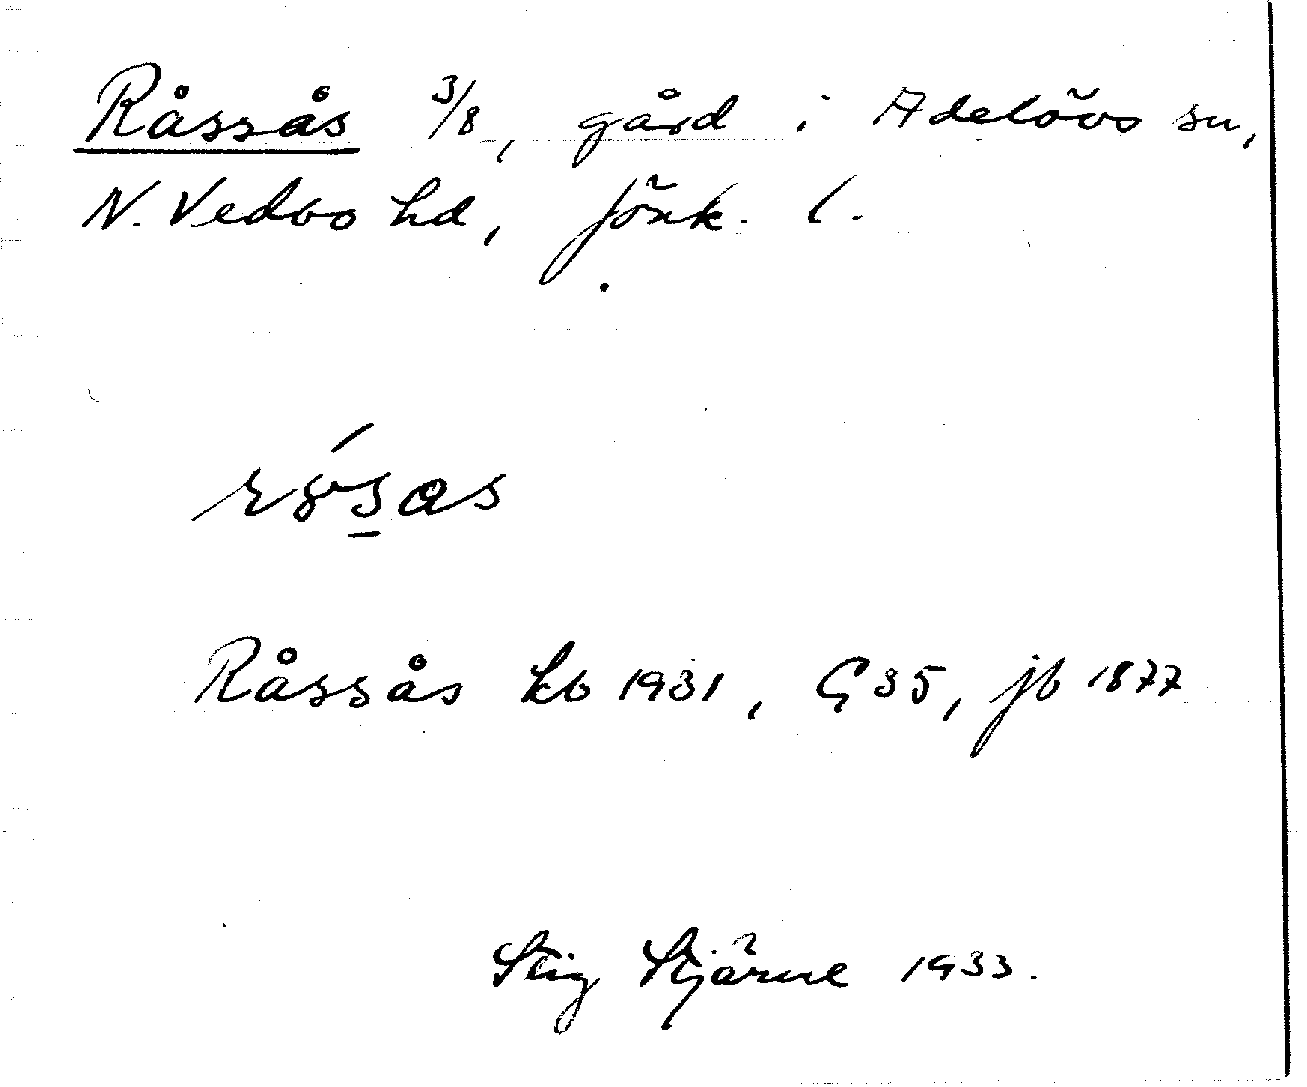 Råssås 3/8, gård i Adelövs sn,
N. Vedbo hd, Jönk. l.
Råssås kb 1931, G 35, jb 1877
Stig Stjärne 1933.